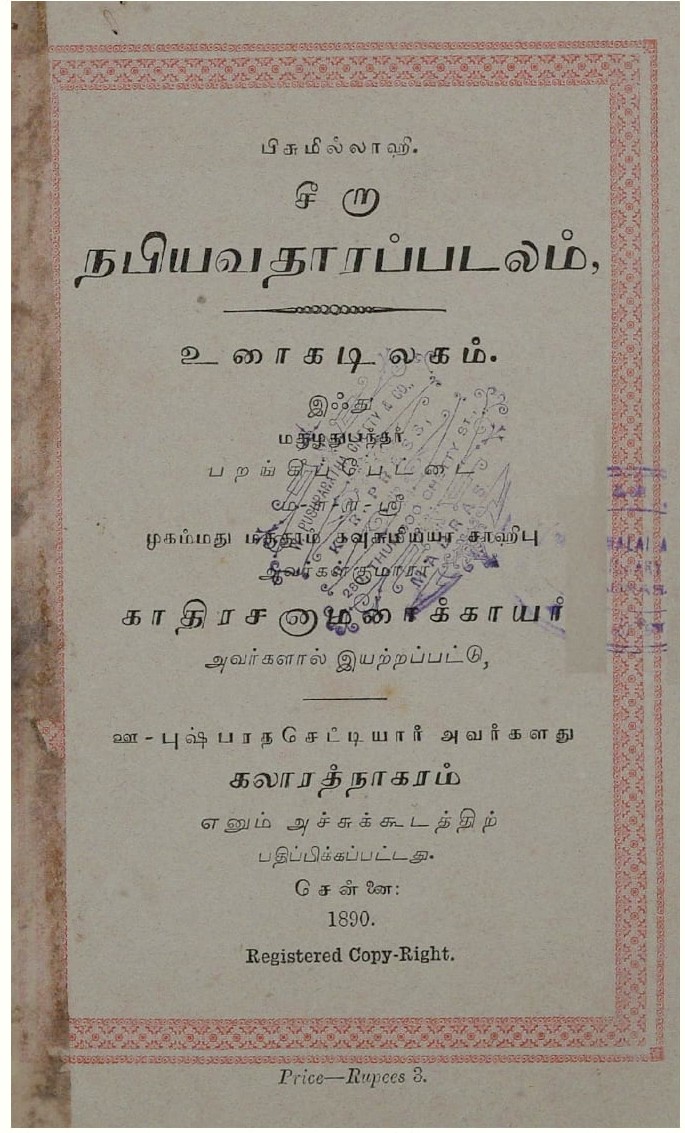 பிசுமில்லாஹி.
சீறா
நபியவதாரப்படலம்,
உரைகடிலகம்.
இஃது
பறங்கிப்பேட்டை
ம-ள-ற-ஸ்ரீ
முகம்மது சாஹிபு
அவர்கள் குமாரர்
காதிரசனாமரைக்காயர்
அவர்களால் இயற்றப்பட்டு,
ஊ - புஷ்பரதசெட்டியார் அவர்களது
கலாரத்நாகரம்
எனும் அச்சுக்கூடத்திற்
பதிப்பிக்கப்பட்டது.
சென்னை:
1890.
Registered Copy-Right.
Price—Rupees 3.